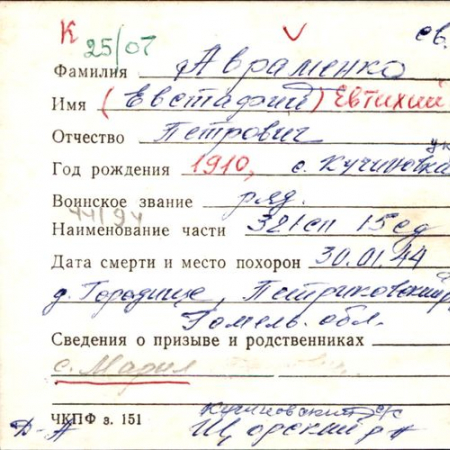 К 25/07 V св.
Фамилия Авраменко
Имя (Евстафий) Евтихий
Отчество Петрович
Год рождения 1910, с. Кучиновка
Воинское звание ряд.
44/94
Наименование части 321сп 15сд
Дата смерти и место похорон 30.01.44
д. Городище, Петриковский р
Гомельв. обл.
Сведения о призыве и родственниках
с. Мария
ЧКПФ з. 151 Кучиновский с/с
Д-А Щорский р-н